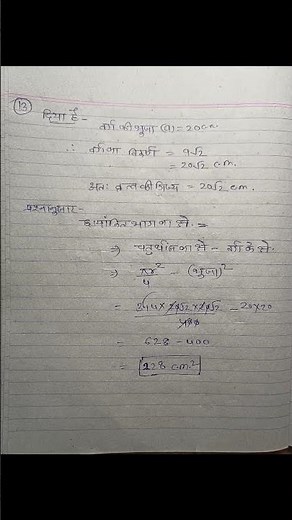 (13) दिया है -
वर्ग की भुजा (a) = 20 cm.
∴ वर्ग का विकर्ण = a√2
= 20√2 cm.
अतः वृत्त की त्रिज्या = 20√2 cm.
प्रश्नानुसार -
छायांकित भाग का क्षे. =
⇒ चतुर्थांश का क्षे - वर्ग के क्षे.
⇒ πr²/4 - (भुजा)²
= 3.14 × 20√2 × 20√2 / - 20×20
= 628 - 400
= 228 cm²